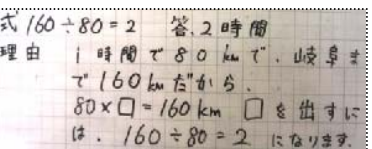 式 160÷80=2 答.2時間
理由 1時間で80kmで、岐阜ま
で160kmだから、
80×□=160km □を出すに
は、160÷80=2になります。